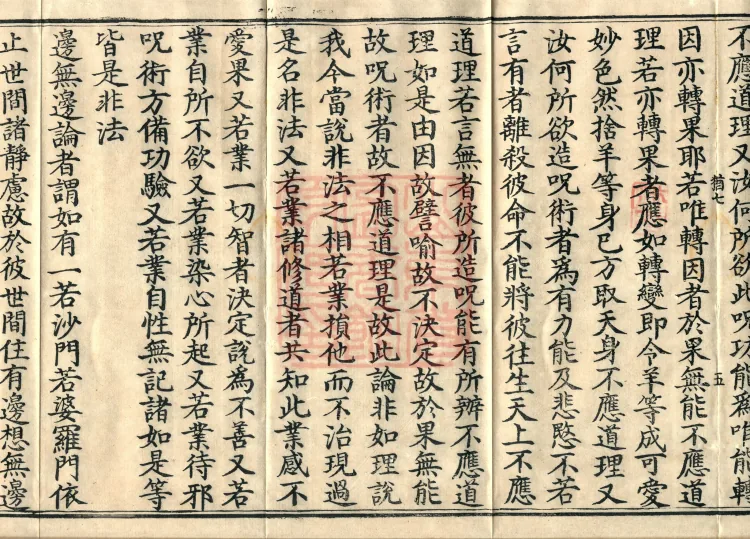 不應道理又汝何所欲此呪功能為唯能轉
因亦轉果耶若唯轉因者於果無能不應道
理若亦轉果者應如轉變即令羊等成可愛
妙色然捨羊等身已方取天身不應道理又
汝何所欲造呪術者為有力能及悲愍不若
言有者離殺彼命不能將彼往生天上不應
道理若言無者彼所造呪能有所辨不應道
理如是由因故譬喻故不決定故於果無能
故呪術者故不應道理是故此論非如理說
我今當說非法之相若業損他而不治現過
是名非法又若業諸修道者共知此業感不
愛果又若業一切智者決定說為不善又若
業自所不欲又若業染心所起又若業待邪
呪術方備功驗又若業自性無記諸如是等
皆是非法
邊無邊論者謂如有一若沙門若婆羅門依
止世間諸靜慮故於彼世間住有邊想無邊
猶七
五